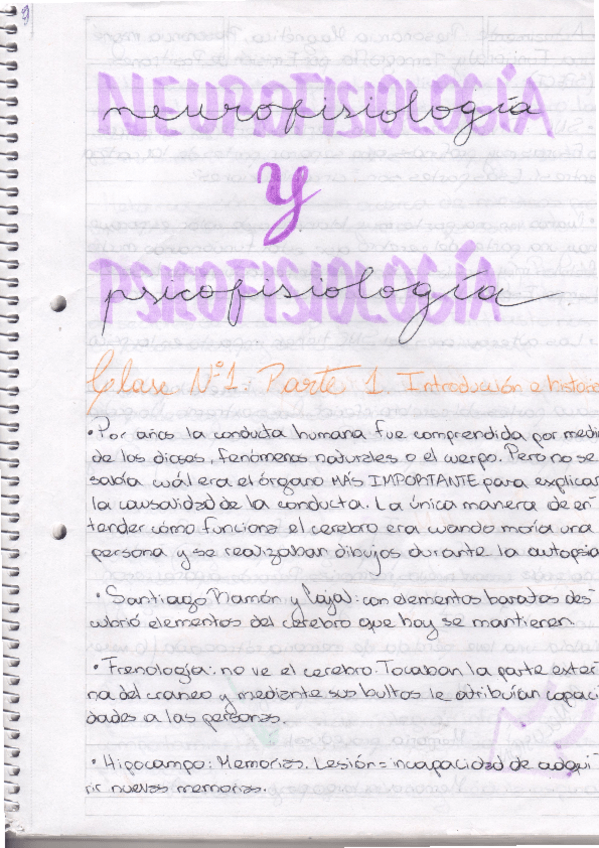 NEUROFISIOLOGÍA
neurofisiología
y
PSICOFISIOLOGÍA
psicofisiología
Clase N°1: Parte 1. Introducción e historia
• Por años la conducta humana fue comprendida por medi
de los dioses, fenómenos naturales o el cuerpo. Pero no se
sabía cuál era el órgano MÁS IMPORTANTE para explicar
la causalidad de la conducta. La única manera de en-
tender cómo funciona el cerebro era cuando moría una
persona y se realizaban dibujos durante la autopsia
• Santiago Ramón y Cajal: con elementos baratos des
cubrió elementos del cerebro que hoy se mantienen.
• Frenología: no ve el cerebro. Tocaban la parte exter-
na del craneo y mediante sus bultos le atribuían capaci
dades a las personas.
• Hipocampo: Memorias. Lesión = incapacidad de adqui
rir nuevas memorias.